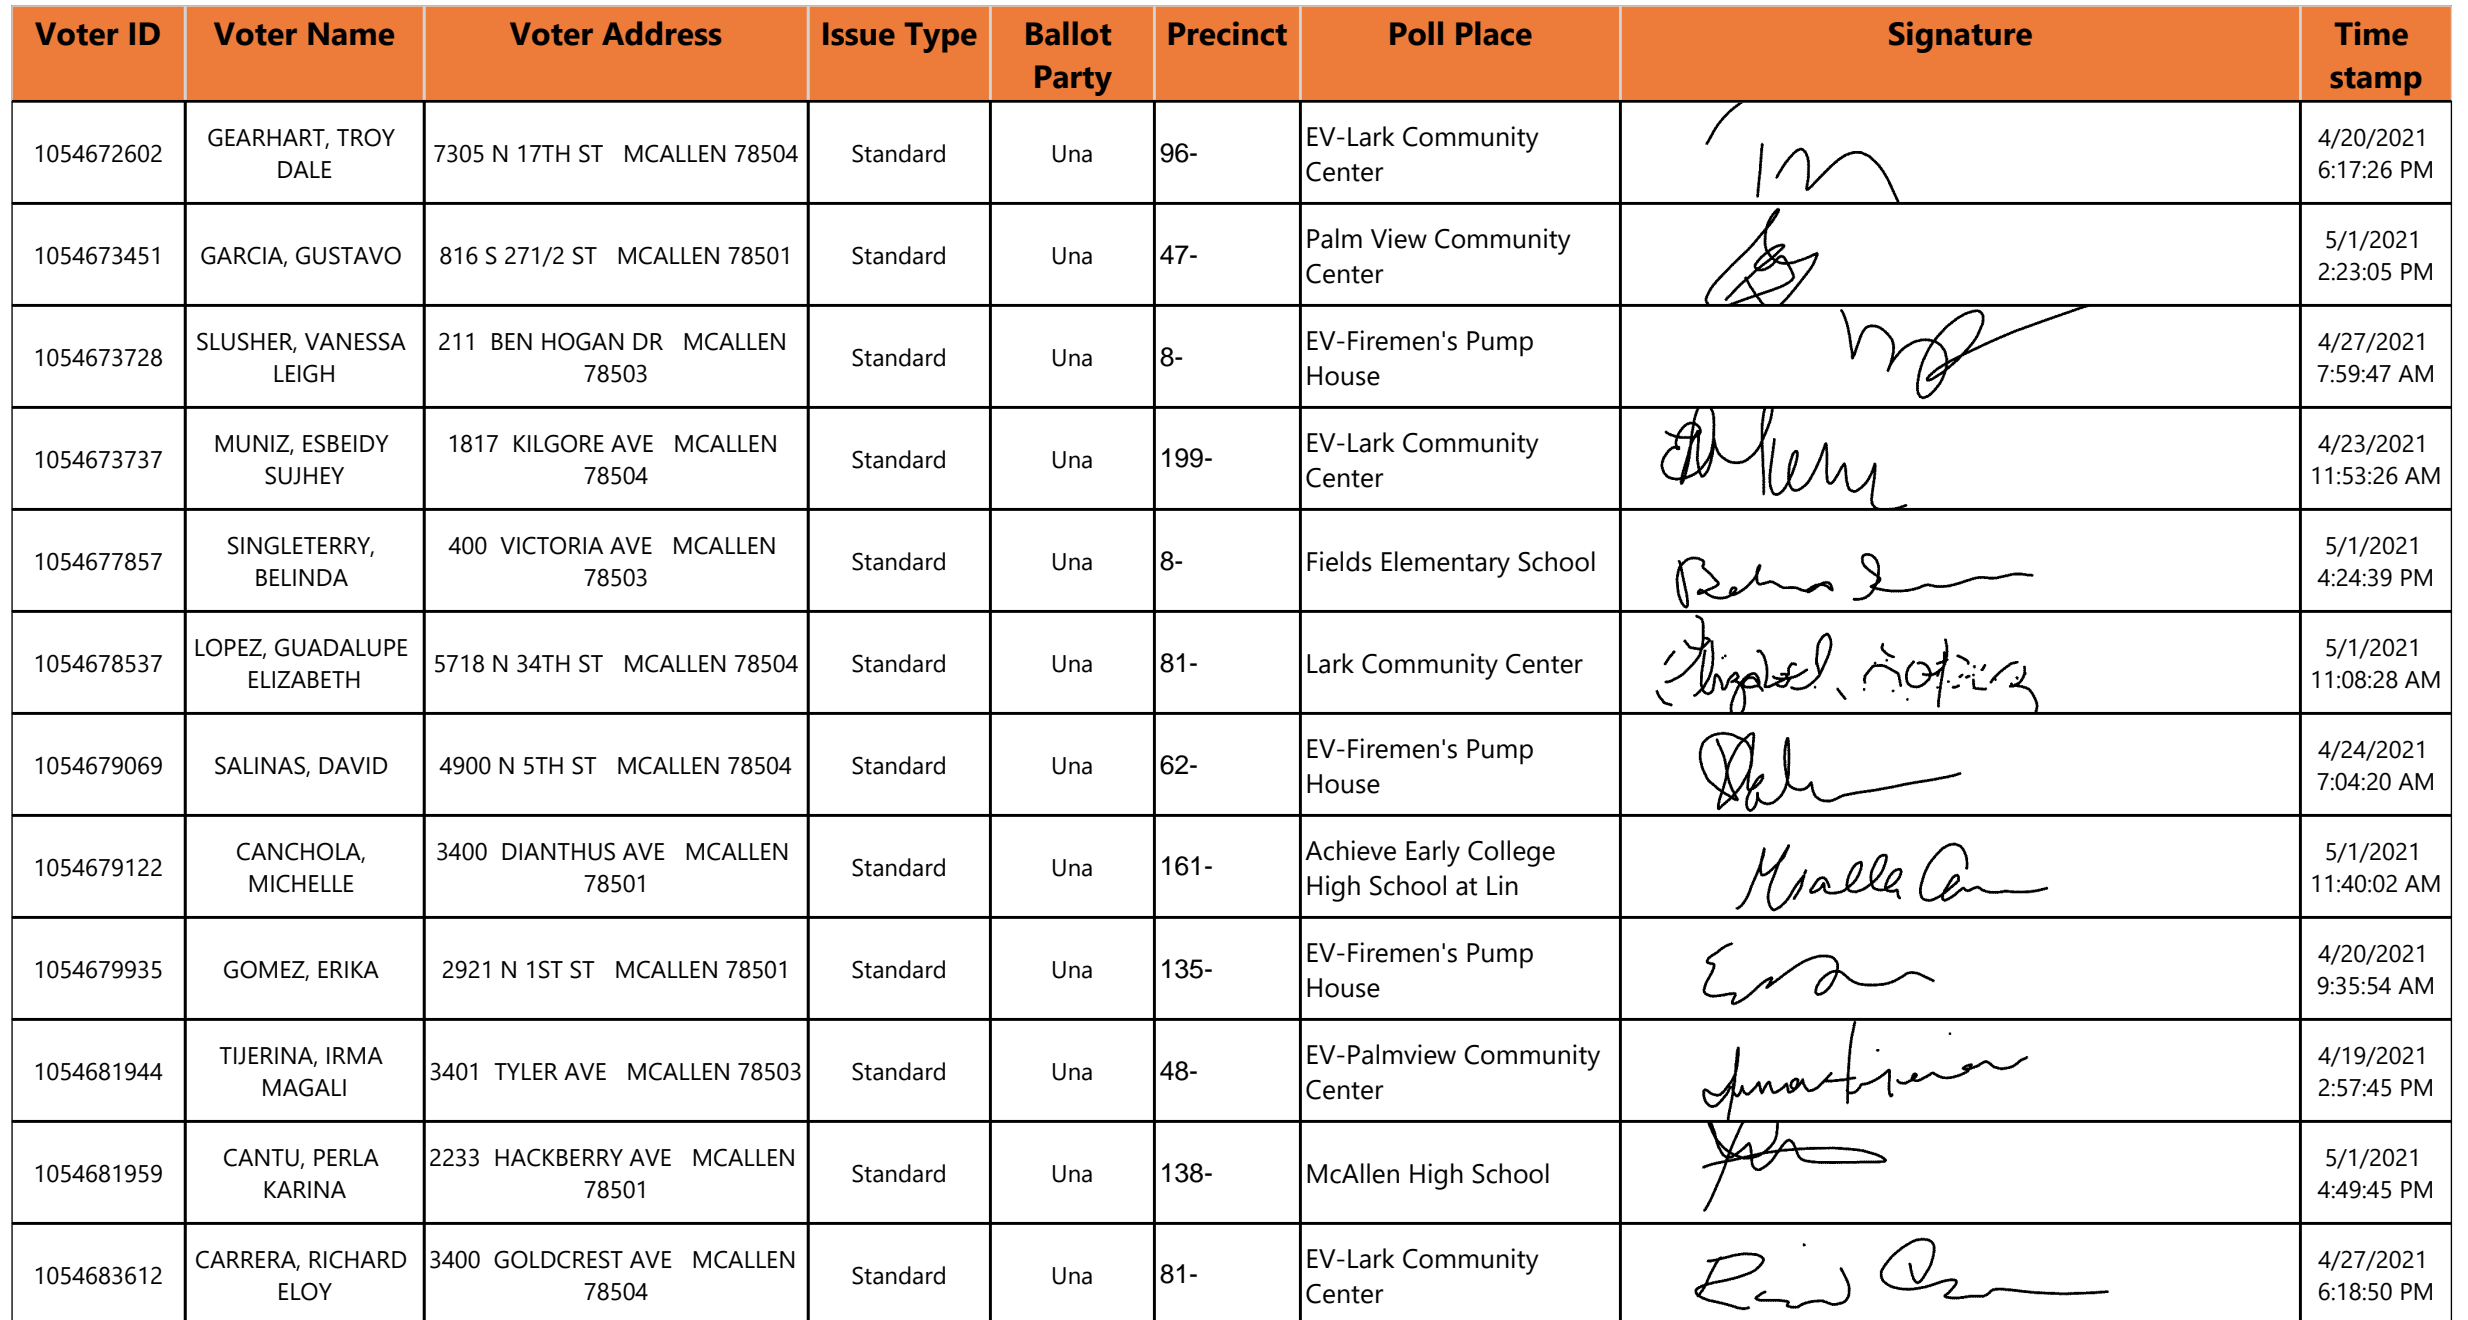 Voter ID Voter Name Voter Address Issue Type Ballot Party Precinct Poll Place Signature Time stamp
1054672602 GEARHART, TROY DALE 7305 N 17TH ST MCALLEN 78504 Standard Una 96- EV-Lark Community Center 4/20/2021 6:17:26 PM
1054673451 GARCIA, GUSTAVO 816 S 271/2 ST MCALLEN 78501 Standard Una 47- Palm View Community Center 5/1/2021 2:23:05 PM
1054673728 SLUSHER, VANESSA LEIGH 211 BEN HOGAN DR MCALLEN 78503 Standard Una 8- EV-Firemen's Pump House 4/27/2021 7:59:47 AM
1054673737 MUNIZ, ESBEIDY SUJHEY 1817 KILGORE AVE MCALLEN 78504 Standard Una 199- EV-Lark Community Center 4/23/2021 11:53:26 AM
1054677857 SINGLETERRY, BELINDA 400 VICTORIA AVE MCALLEN 78503 Standard Una 8- Fields Elementary School 5/1/2021 4:24:39 PM
1054678537 LOPEZ, GUADALUPE ELIZABETH 5718 N 34TH ST MCALLEN 78504 Standard Una 81- Lark Community Center 5/1/2021 11:08:28 AM
1054679069 SALINAS, DAVID 4900 N 5TH ST MCALLEN 78504 Standard Una 62- EV-Firemen's Pump House 4/24/2021 7:04:20 AM
1054679122 CANCHOLA, MICHELLE 3400 DIANTHUS AVE MCALLEN 78501 Standard Una 161- Achieve Early College High School at Lin 5/1/2021 11:40:02 AM
1054679935 GOMEZ, ERIKA 2921 N 1ST ST MCALLEN 78501 Standard Una 135- EV-Firemen's Pump House 4/20/2021 9:35:54 AM
1054681944 TIJERINA, IRMA MAGALI 3401 TYLER AVE MCALLEN 78503 Standard Una 48- EV-Palmview Community Center 4/19/2021 2:57:45 PM
1054681959 CANTU, PERLA KARINA 2233 HACKBERRY AVE MCALLEN 78501 Standard Una 138- McAllen High School 5/1/2021 4:49:45 PM
1054683612 CARRERA, RICHARD ELOY 3400 GOLDCREST AVE MCALLEN 78504 Standard Una 81- EV-Lark Community Center 4/27/2021 6:18:50 PM